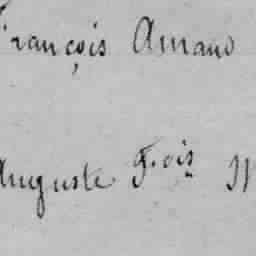 François Amand
Auguste F.ois